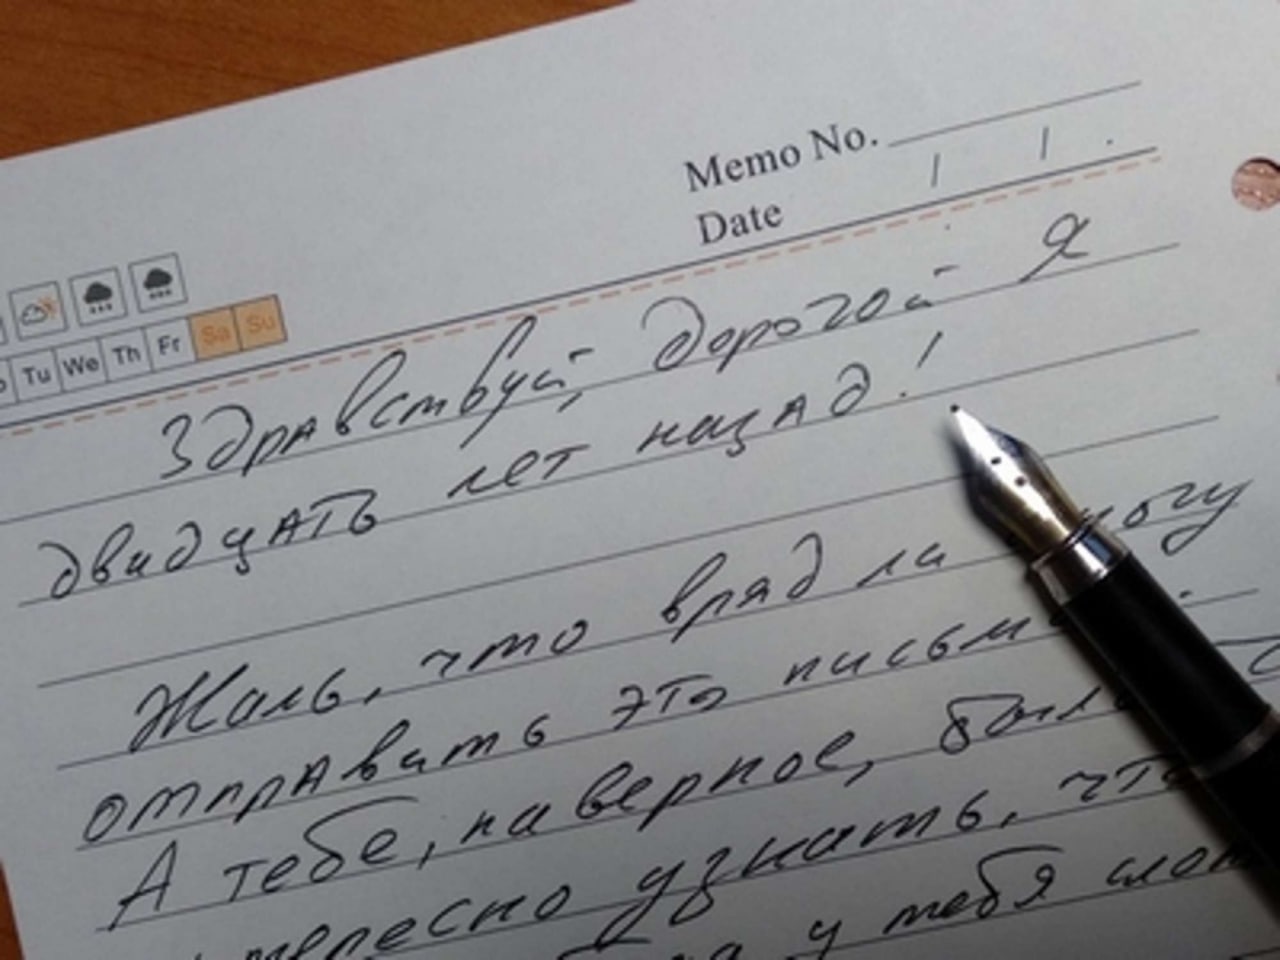 Memo No.
Date / / .
Tu We Th Fr Sa Su
Здравствуй, дорогой Я
двадцать лет назад!
Жаль, что вряд ли могу
отправить это письмо.
А тебе, наверное, было
узнать, что
у тебя